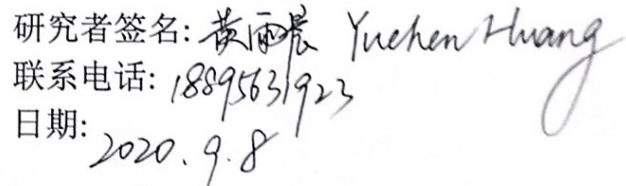 研究者签名: 黄雨晨 Yuchen Huang
联系电话: 18895631923
日期: 2020.9.8